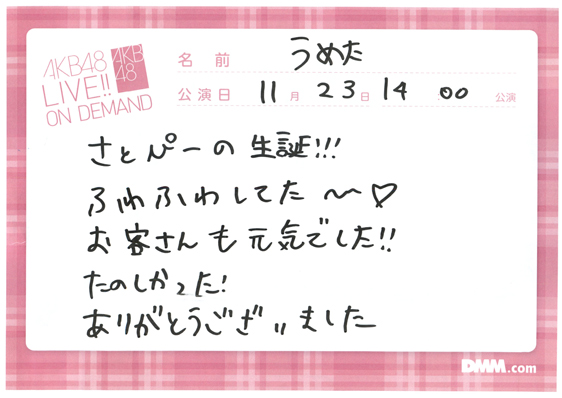 AKB48
LIVE!!
ON DEMAND
AKB
48
名前 うめた
公演日 11月23日14 00公演
さとぴーの生誕!!!
ふわふわしてた 〜〜♡
お客さんも元気でした!!
たのしかった!
ありがとうございました
DMM.com